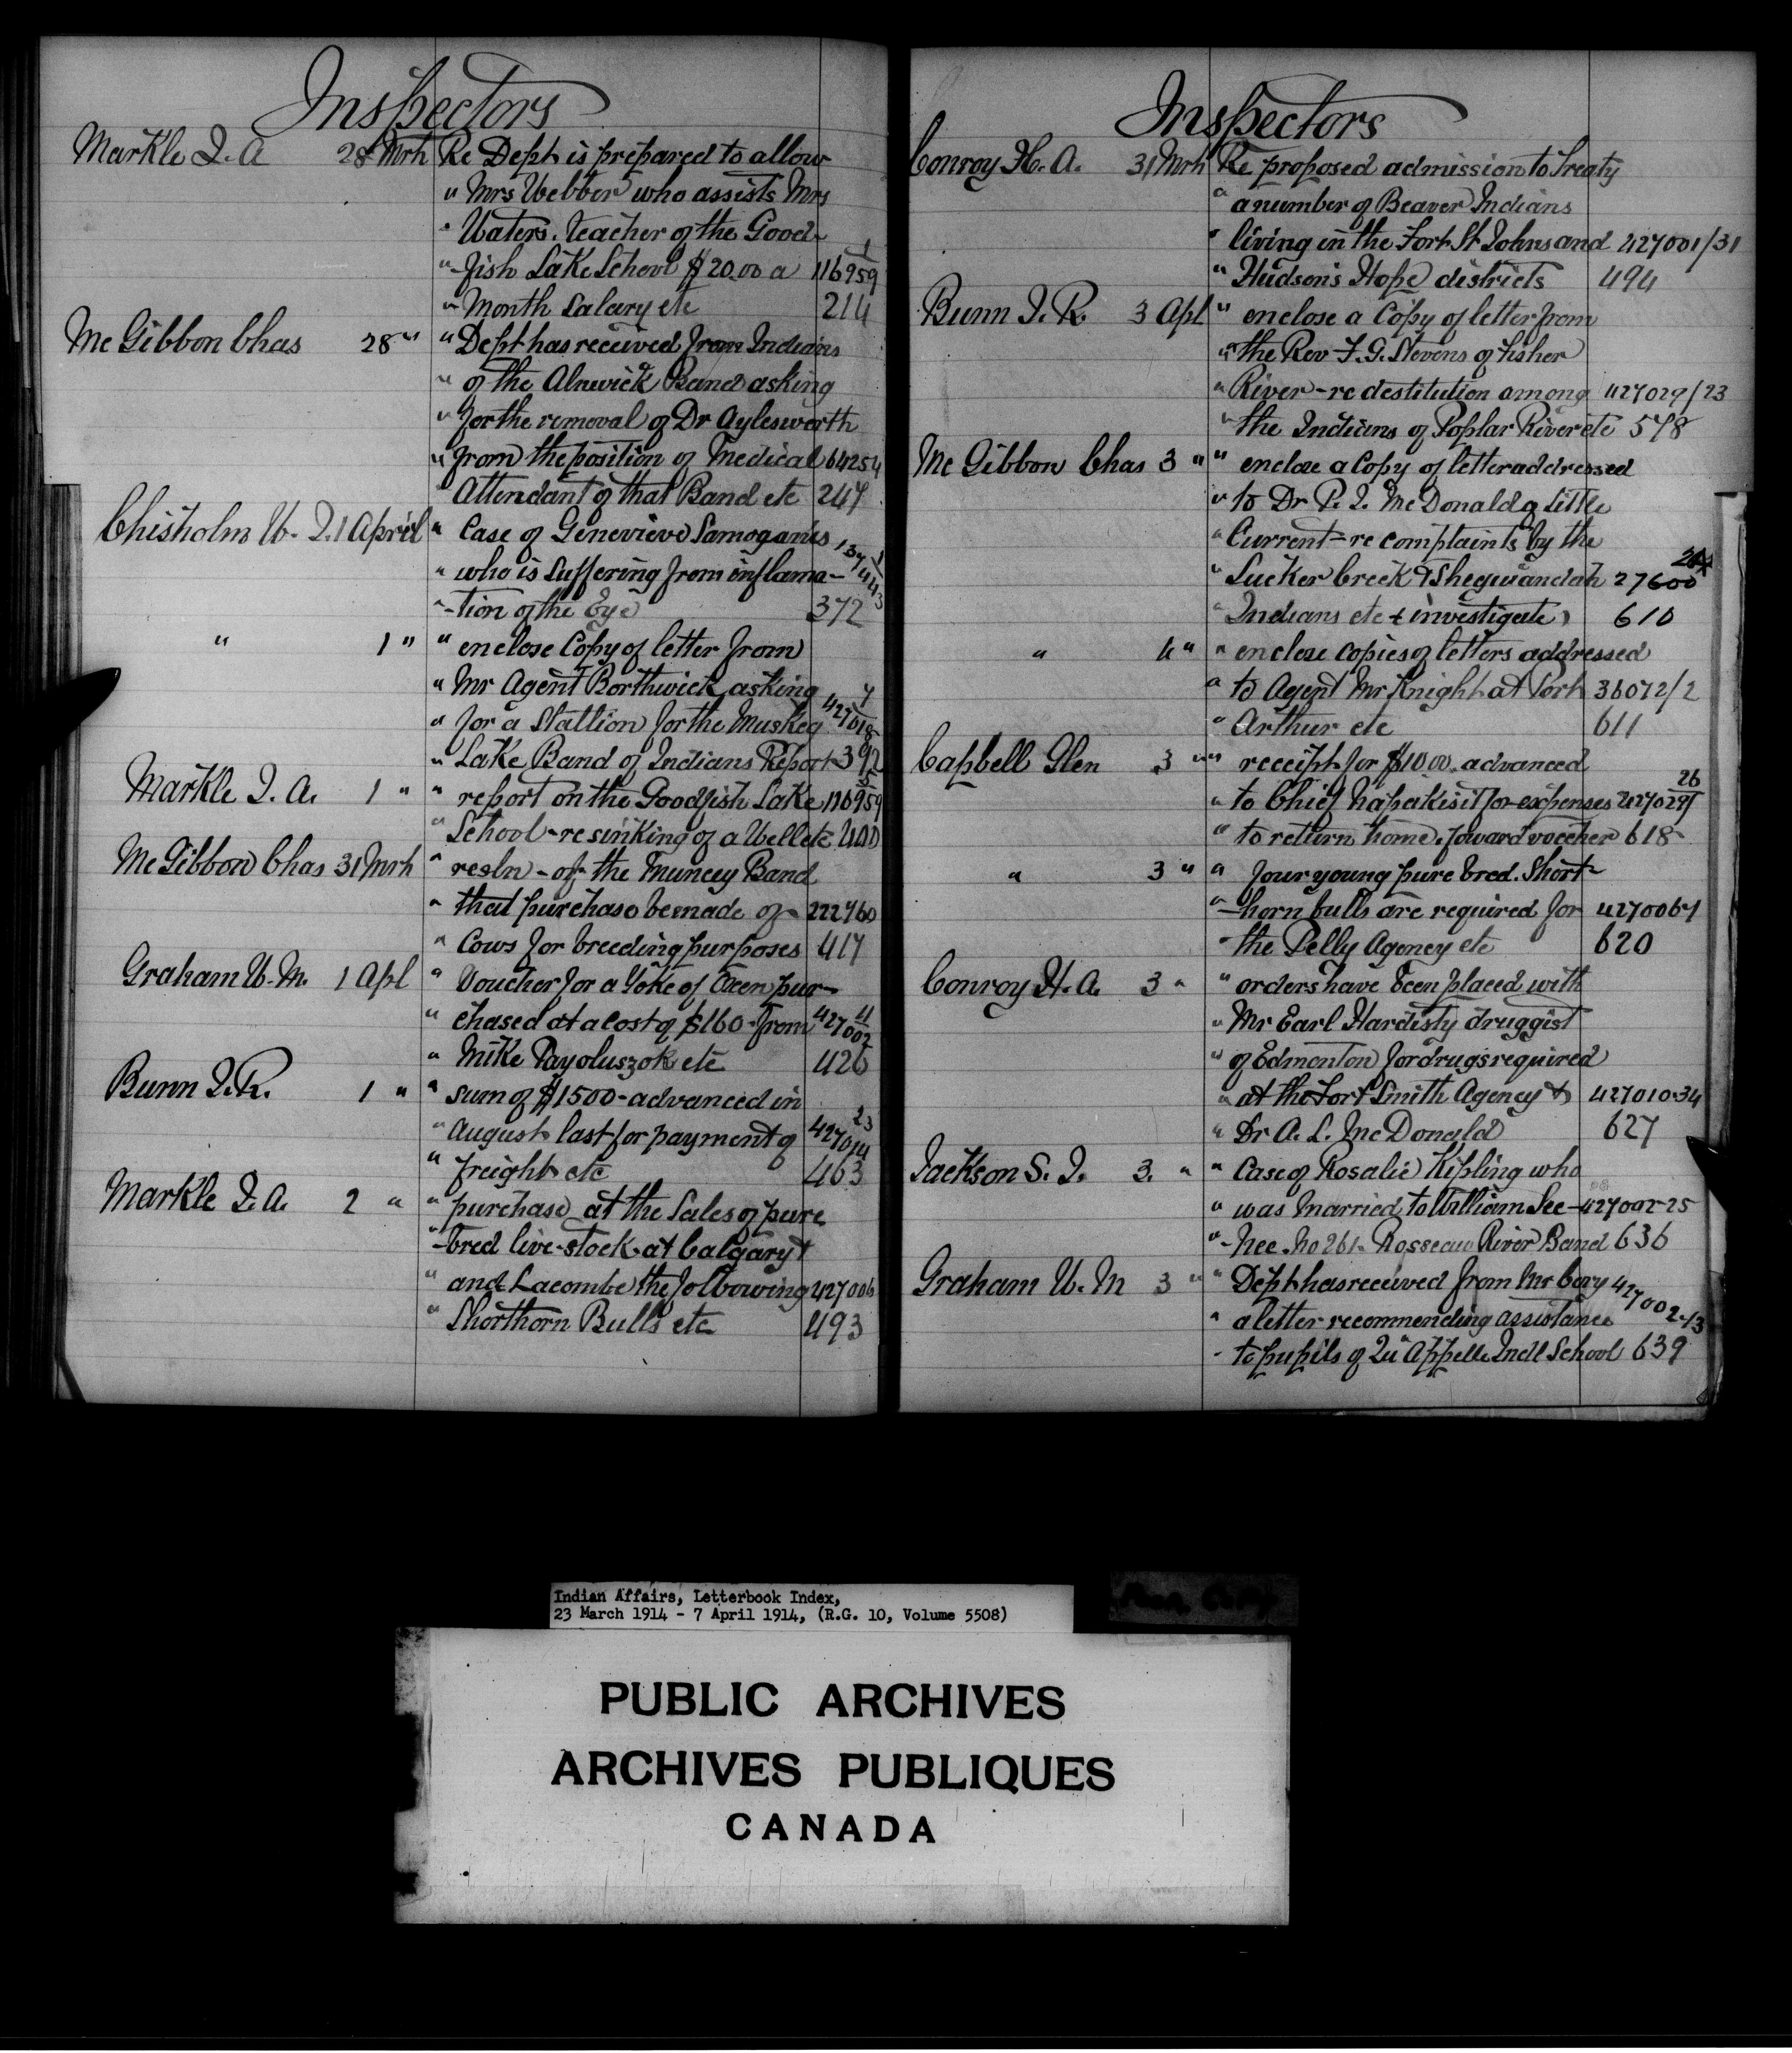 Inspectors
Markle J. A 28 Mrh Re Dept is prepared to allow
" Mrs Webber who assists Mrs
" Waters. teacher of the Good- 1
"-fish Lake School $20.00 a 116959
" Month Salary etc 214
Mc Gibbon Chas 28 " " Dept has received from Indians
" of the Alnwick Band asking
" for the removal of Dr Aylesworth
" from the position of Medical 64254
" Attendant of that Band etc 247
Chisholm W. J. 1 April " Case of Genevieve Samoganis 1
" who is suffering from inflama- 137443
"-tion of the Eye 372
" 1 " " enclose Copy of letter from
" Mr Agent Borthwick asking 7
" for a Stallion for the Muskeg 427018
" Lake Band of Indians Report 392
Markle J. A. 1 " " report on the Goodfish Lake 5 116959
" School-re sinking of a Well etc 400
Mc Gibbon Chas 31 Mrh " resln-of the Muncey Band
" that purchase be made of 222760
" Cows for breeding purposes 417
Graham W. M. 1 Apl " Voucher for a Yoke of Oxen pur-
" chased at a cost of $160- from 11 427002
" Mike Payoluszok etc 426
Bunn J. R. 1 " " sum of $1500- advanced in
" August last for payment of 23 427014
" freight etc 463
Markle J. A. 2 " " purchase at the Sales of pure
"-bred live-stock at Calgary &
" and Lacombe the following 427006
" Shorthorn Bulls etc 493
Inspectors
Conroy H. A. 31 Mrh Re proposed admission to Treaty
" a number of Beaver Indians
" living in the Fort St Johns and 427001/31
" Hudson's Hope districts 494
Bunn J. R. 3 Apl " enclose a Copy of letter from
" the Rev F. G. Stevens of Fisher
" River-re destitution among 427029/23
" the Indians of Poplar River etc 578
Mc Gibbon Chas 3 " " enclose a Copy of letter addressed
" to Dr P. J. McDonald of Little
" Current-re complaints by the
" Sucker Creek & Shegwandah 27600
" Indians etc & investigate 610
" 4 " " enclose copies of letters addressed
" to Agent Mr Knight at Port 36072/2
" Arthur etc 611
Capbell Glen 3 " " receipt for $10.00 advanced
" to Chief Napakisit for expenses 26 427029
" to return home. forward voucher 618
" 3 " " four young pure bred. Short-
"-horn bulls are required for 4270067
" the Pelly Agency etc 620
Conroy H. A. 3 " " orders have been placed with
" Mr Earl Hardisty druggist
" of Edmonton for drugs required
" at the Fort Smith Agency & 427010-34
" Dr A. L. McDonald 627
Jackson S. J. 3. " " Case of Rosalie Kipling who
" was Married to William See- 427002-25
"-nee. No 261- Rosseau River Band 636
Graham W. M 3 " " Dept has received from Mr Cory 427002-13
" a letter recommending assistance
" to pupils of Qu'Appelle Indl School 639
Indian Affairs, Letterbook Index,
23 March 1914 - 7 April 1914, (R.G. 10, Volume 5508)
PUBLIC ARCHIVES
ARCHIVES PUBLIQUES
CANADA